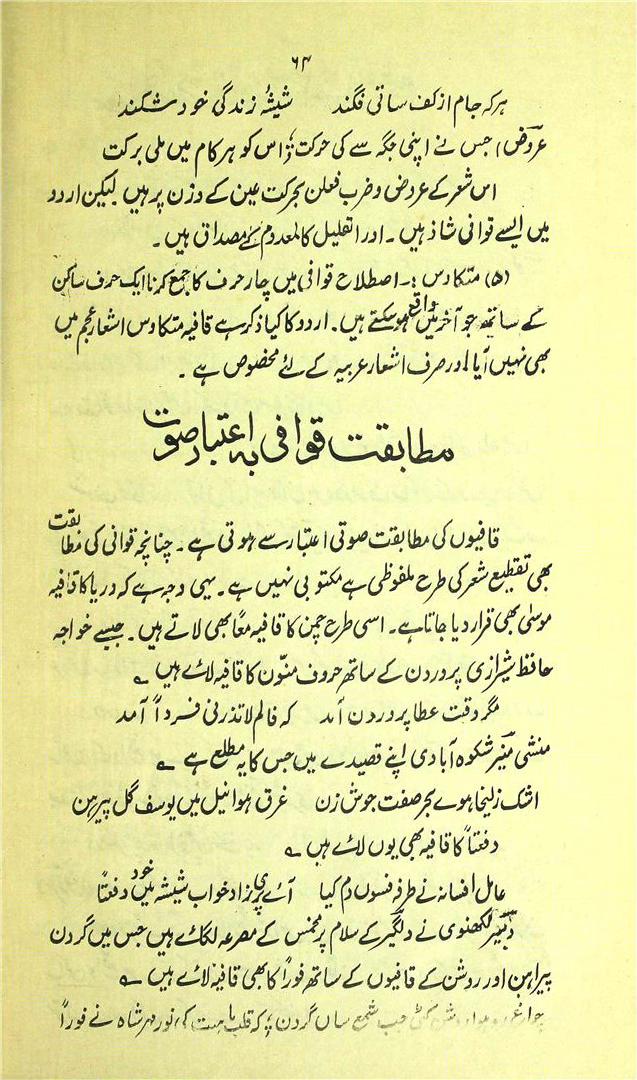 ۶۴
ہر کہ جام از کف ساقی فگند شیشۂ زندگی خود شکند
عروض) جس نے اپنی جگہ سے کی حرکت اس کو ہر کام میں ملی برکت
اس شعر کے عروض و ضرب فعلن بحرکت عین کے وزن پر ہیں لیکن اردو
میں ایسے قوافی شاذ ہیں۔ اور القلیل کالمعدوم کے مصداق ہیں۔
(۵) متکاوس :۔ اصطلاح قوافی میں چار حرف کا جمع کرنا ایک حرف ساکن
کے ساتھ جو آخر میں واقع ہو سکتے ہیں۔ اردو کا کیا ذکر ہے قافیہ متکاوس اشعار عجم میں
بھی نہیں آیا اور صرف اشعار عربیہ کے لئے مخصوص ہے۔
مطابقت قوافی بہ اعتبار صوت
قافیوں کی مطابقت صوتی اعتبار سے ہوتی ہے۔ چنانچہ قوافی کی مطابقت
بھی تقطیع شعر کی طرح ملفوظی ہے مکتوبی نہیں ہے۔ یہی وجہ ہے کہ دریا کا قافیہ
موسیٰ بھی قرار دیا جاتا ہے۔ اسی طرح چمن کا قافیہ معاً بھی لاتے ہیں۔ جیسے خواجہ
حافظ شیرازی پروردن کے ساتھ حروف منوّن کا قافیہ لائے ہیں ؎
مگر وقت عطا پروردن آمد کہ فالم لاتذرنی فرداً آمد
منشی منیر شکوہ آبادی اپنے قصیدے میں جس کا یہ مطلع ہے ؎
اشک زلیخا ہوے بحر صفت جوش زن غرق ہوا نیل میں یوسف گل پیرہن
دفعتاً کا قافیہ بھی یوں لائے ہیں ؎
عامل افسانہ نے طرفہ فسوں دم کیا آئے پری زاد خواب شیشہ میں خود دفعتاً
دبیر لکھنوی نے دلگیر کے سلام پر مخمس کے مصرعہ لگائے ہیں جس میں گردن
پیراہن اور روشن کے قافیوں کے ساتھ فوراً کا بھی قافیہ لائے ہیں ؎
کٹی جب شمع ساں گردن کہ قلب کی نور مہر شاہ نے فوراً